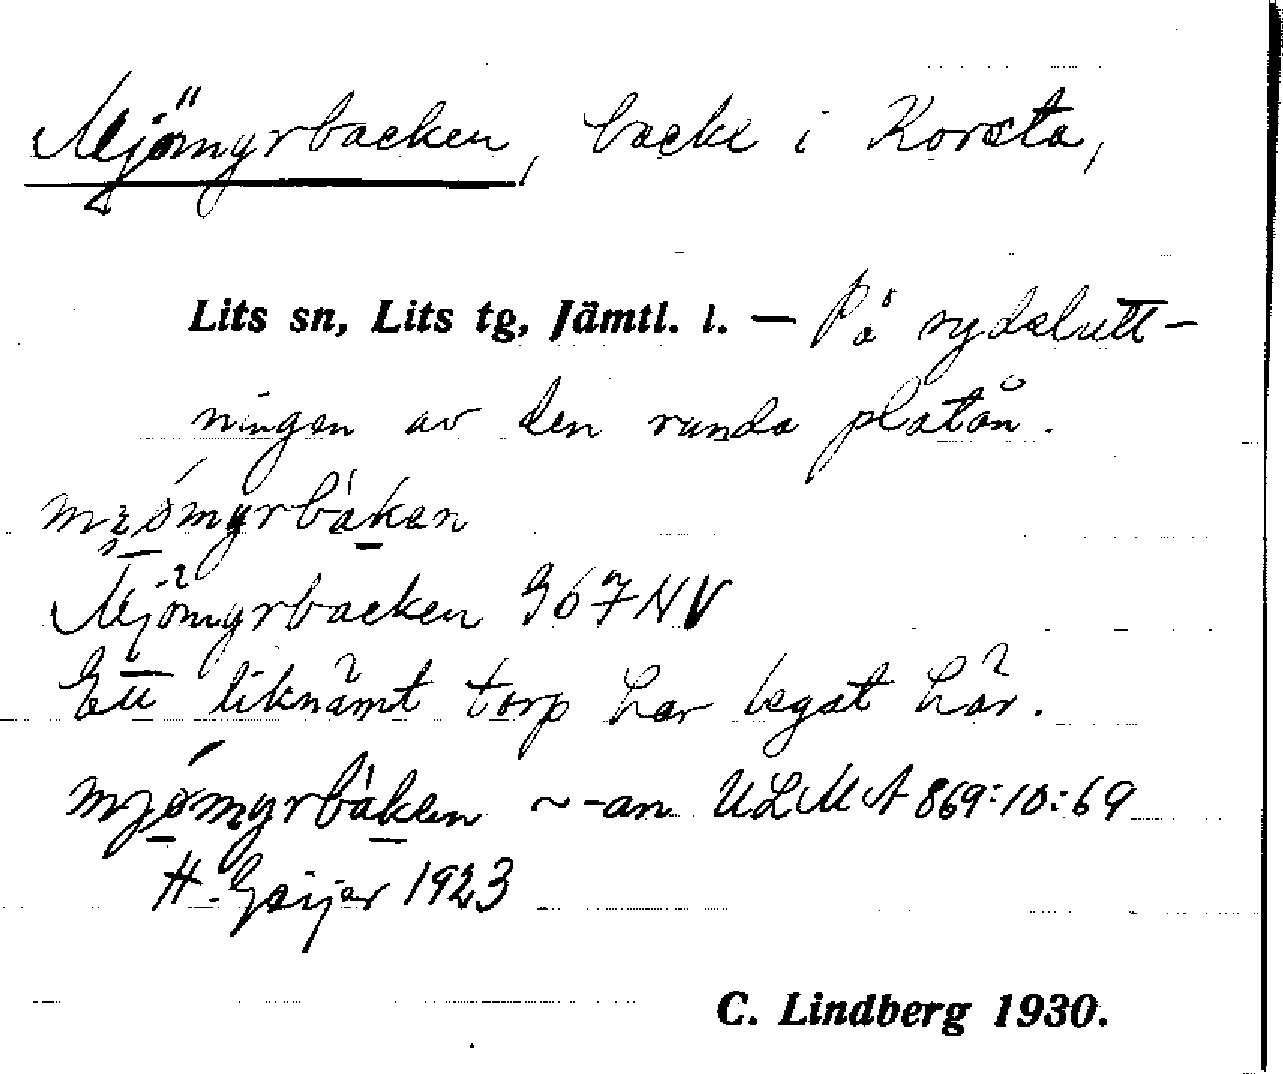 Mjömyrbacken, backe i Korsta,
Lits sn, Lits tg, Jämtl. l. — På sydslutt-
ningen av den runda platån.
Mjömyrbacken 367 NV
Ett liknämt torp har legat här.
mjömyrbàken ~ -an ULMA 869:10:69
H. Geijer 1923
C. Lindberg 1930.